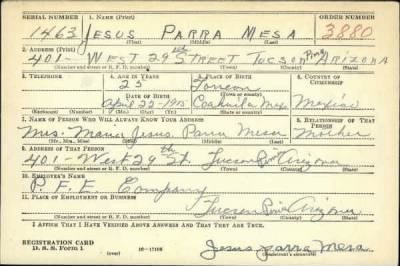 SERIAL NUMBER 1. NAME (Print) ORDER NUMBER
1463 JESUS PARRA MESA 3880
(First) (Middle) (Last)
2. ADDRESS (Print)
401- WEST 29th STREET TUCSON Pima ARIZONA
(Number and street or R. F. D. number) (Town) (County) (State)
3. TELEPHONE 4. AGE IN YEARS 5. PLACE OF BIRTH 6. COUNTRY OF CITIZENSHIP
25 Torreon
DATE OF BIRTH (Town or county)
April 22-1915 Coahuila Mex. Mexico
(Exchange) (Number) (Mo.) (Day) (Yr.) (State or country)
7. NAME OF PERSON WHO WILL ALWAYS KNOW YOUR ADDRESS 8. RELATIONSHIP OF THAT PERSON
Mrs. Maria Jesus Parra Mesa Mother
(Mr., Mrs., Miss) (First) (Middle) (Last)
9. ADDRESS OF THAT PERSON
401- West 29th St. Tucson Pima Arizona
(Number and street or R. F. D. number) (Town) (County) (State)
10. EMPLOYER'S NAME
P. F. E. Company
11. PLACE OF EMPLOYMENT OR BUSINESS
Tucson Pima Arizona
(Number and street or R. F. D. number) (Town) (County) (State)
I AFFIRM THAT I HAVE VERIFIED ABOVE ANSWERS AND THAT THEY ARE TRUE.
REGISTRATION CARD
D. S. S. Form 1 (over) 16-17105 Jesus parra Mesa
(Registrant's signature)